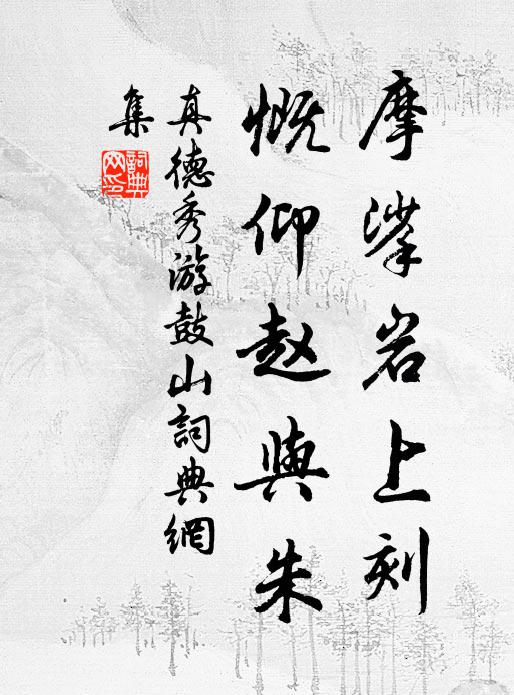 摩挲岩上刻
慨仰赵與朱
真德秀游鼓山詞典網
集
詞典網